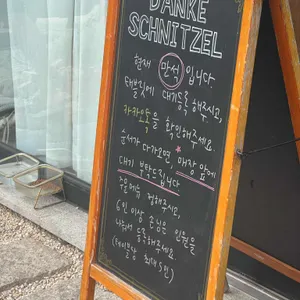 DANKE
SCHNITZEL
현재 만석 입니다.
태블릿에 대기등록 해주시고,
카카오톡을 확인해주세요.
순서가 다가오면 * 매장 앞에
대기 부탁드립니다
메뉴는 정해주시고,
6인 이상 손님은 인원을
나눠서 등록해주세요
(테이블당 최대 5인)